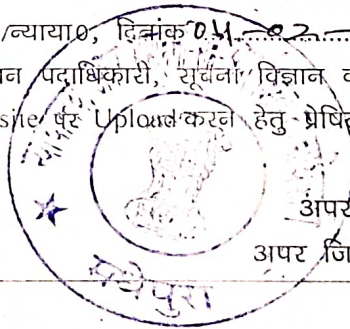 /न्याया0, दिनांक 04.02
पदाधिकारी, सूचना विज्ञान
site पर Upload करने हेतु प्रेषित
अपर
अपर जि
मधेपुरा